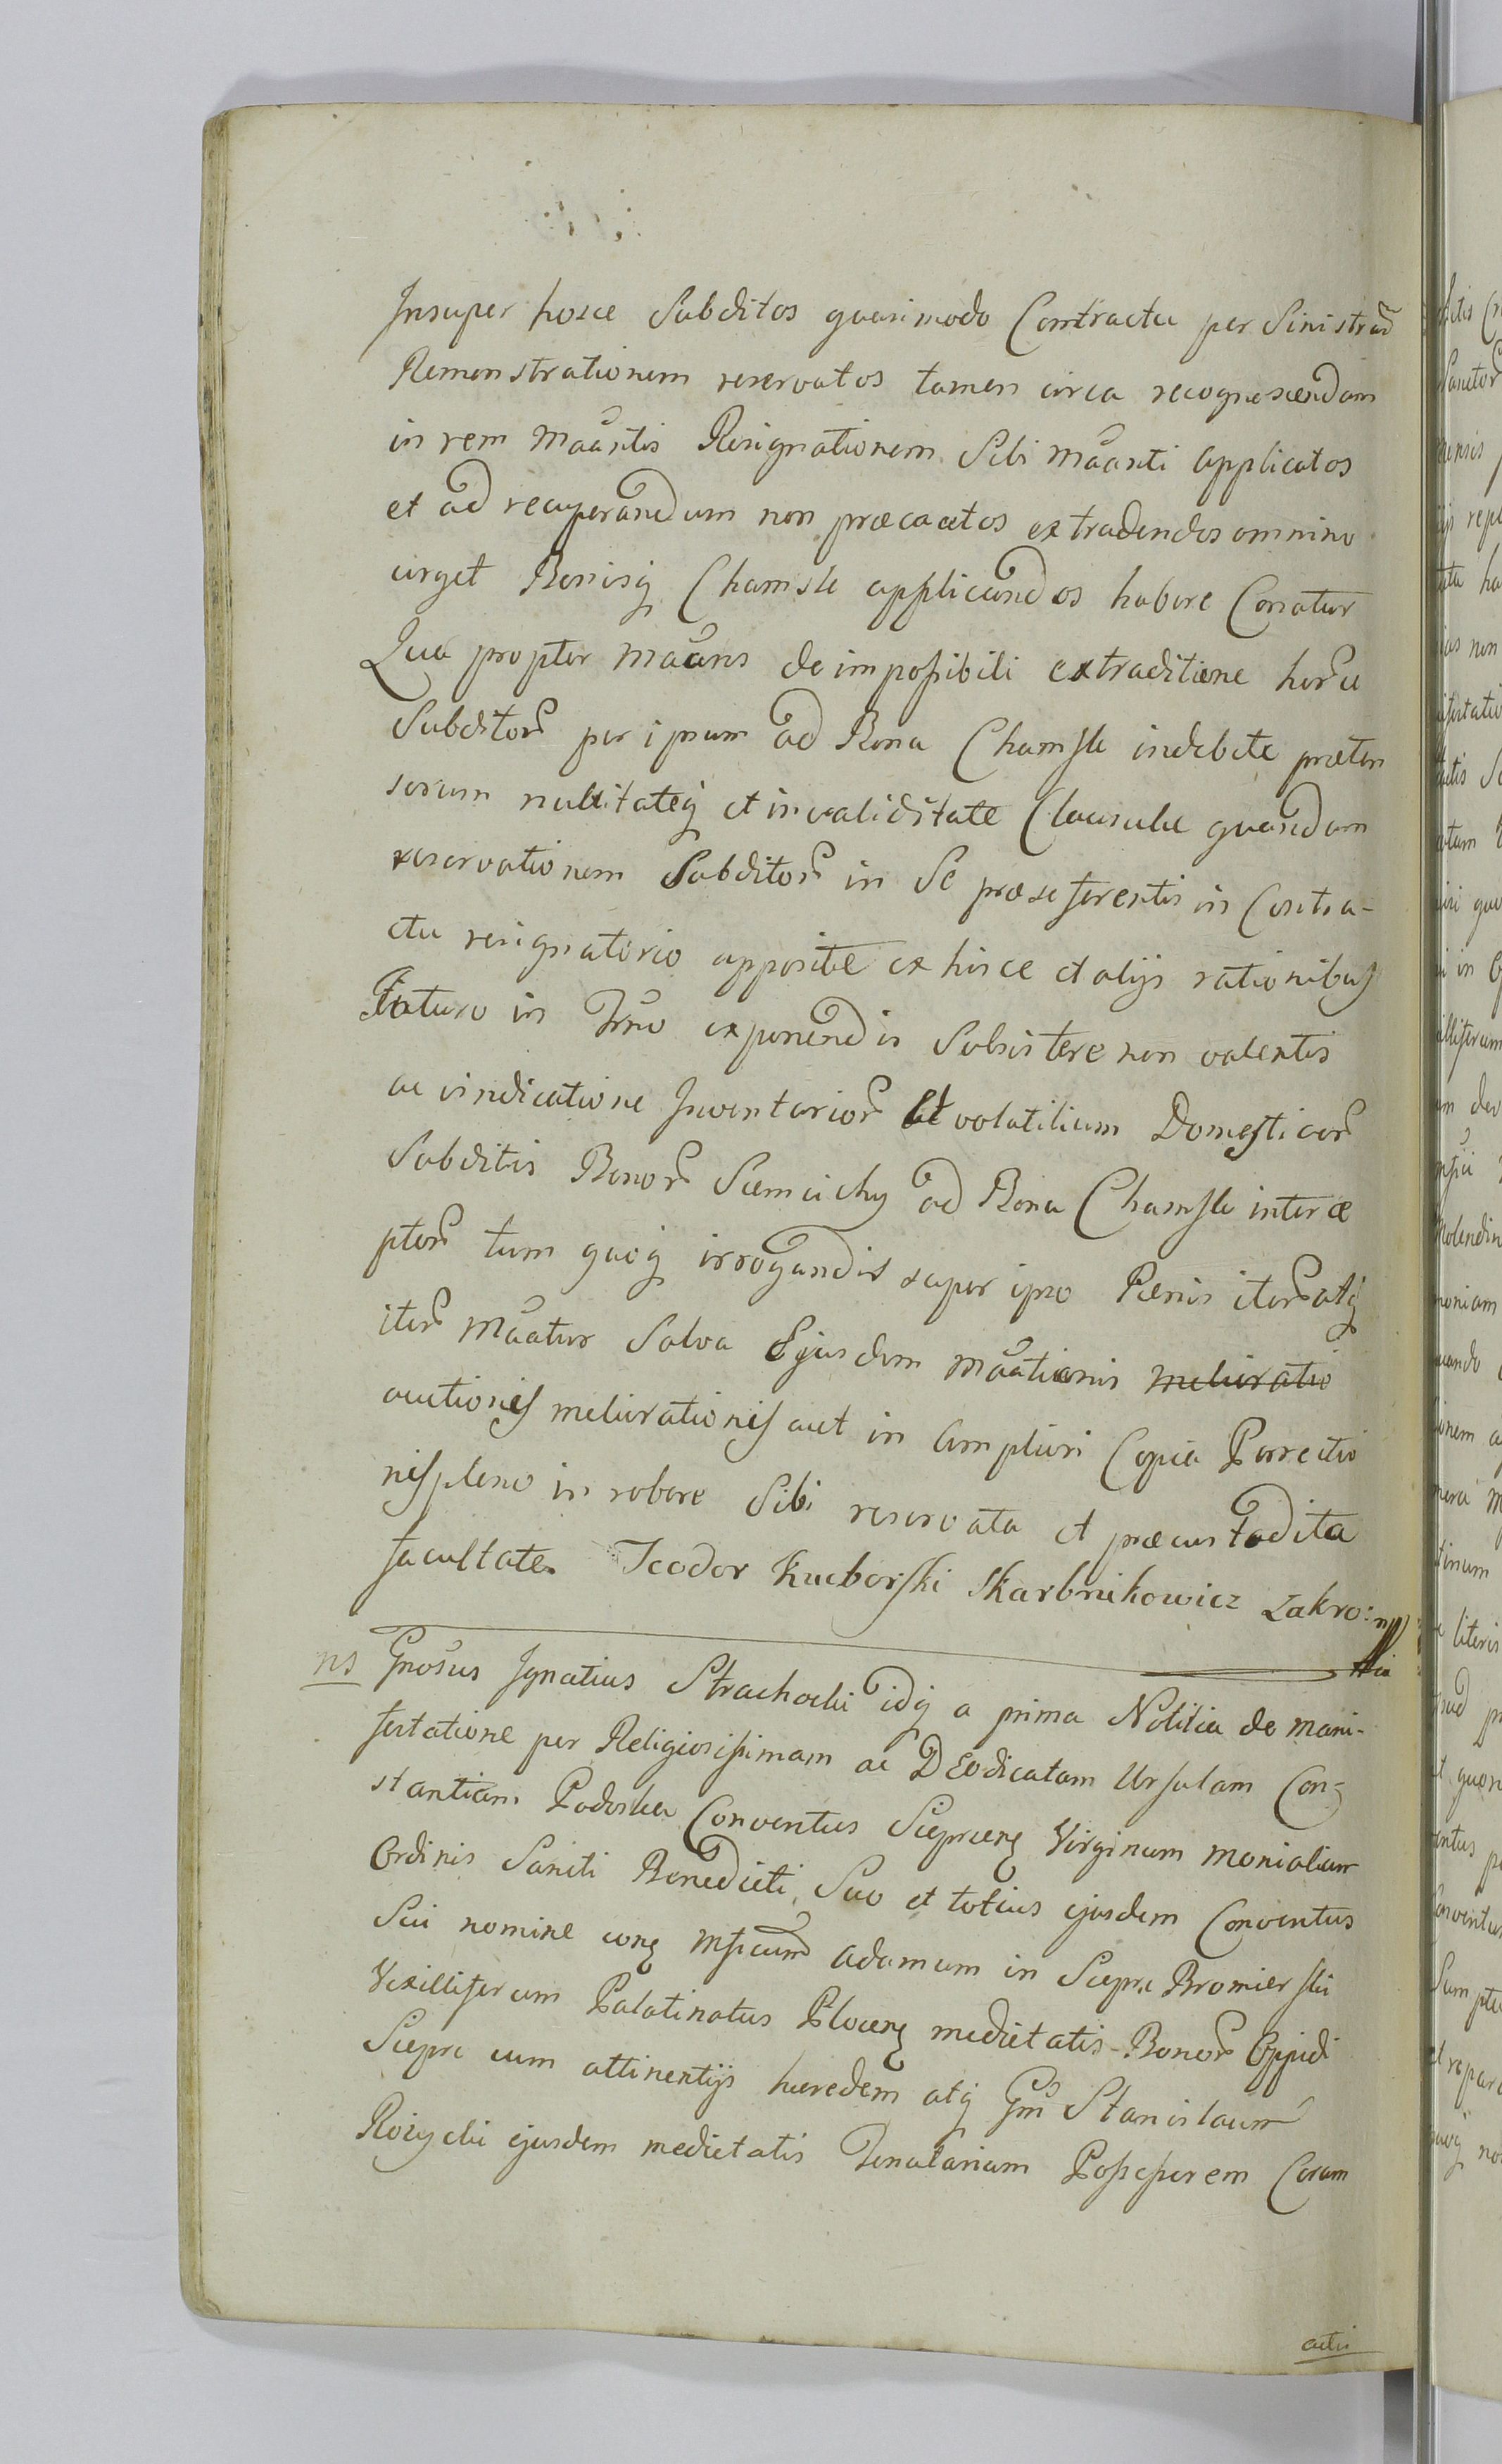 Insuper hosce Subditos quasimodo Contractu per Sinistrã
Remonstrationem reservatos tamen circa recognoscendam
in rem Mãantis Resignationem Sibi mãanti applicatos
et ad recuperandum non præcautos extradendos omnino
urget Bonisq Chamsk applicandos habere Conatur
Qua propter Mãans de impossibili extraditione horũ
Subditorũ per ipsum ad Bona Chamsk indebite præten
sorum nullitateq et invaliditate Clausulæ quandam
reservationem Subditorũ in Se præseferentis in Contra-
ctu resignatorio appositæ ex hisce et alijs rationibus
futuro in Trno exponendis Subsistere non valentis
ac vindicatione Inventariorũ et volatilium Domesticorũ
Subditis Bonorũ Siemiichy ad Bona Chamsk interce
ptorũ tum quoq irrogandis super ipso Pænis iterũ atq
iterũ Mãatur Salva Ejusdem mãationis melioratio
auctionis meliorationis aut in Ampliori Copia Porrectio
nis pleno in robore Sibi reservata et præcustodita
facultate. Teodor Kuchorski Skarbnikowicz Zakro: mp
ns Gnosus Ignatius Strachocki idq a prima Notitia de mani-
festatione per Religiosissimam ac DEodicatam Ursulam Con-
stantiam Podoska Conventus Sieprcenq Virginum Monialium
Ordinis Sancti Benedicti, Suo et totius ejusdem Conventus
Sui nomine conq Mficum Adamum in Sieprc Bromierski
Vexilliferum Palatinatus Plocenq medietatis Bonorũ Oppidi
Sieprc cum attinentijs hæredem atq Gm Stanislaum
Rościszewski ejusdem medietatis Tenutarium Possessorem Coram
actis